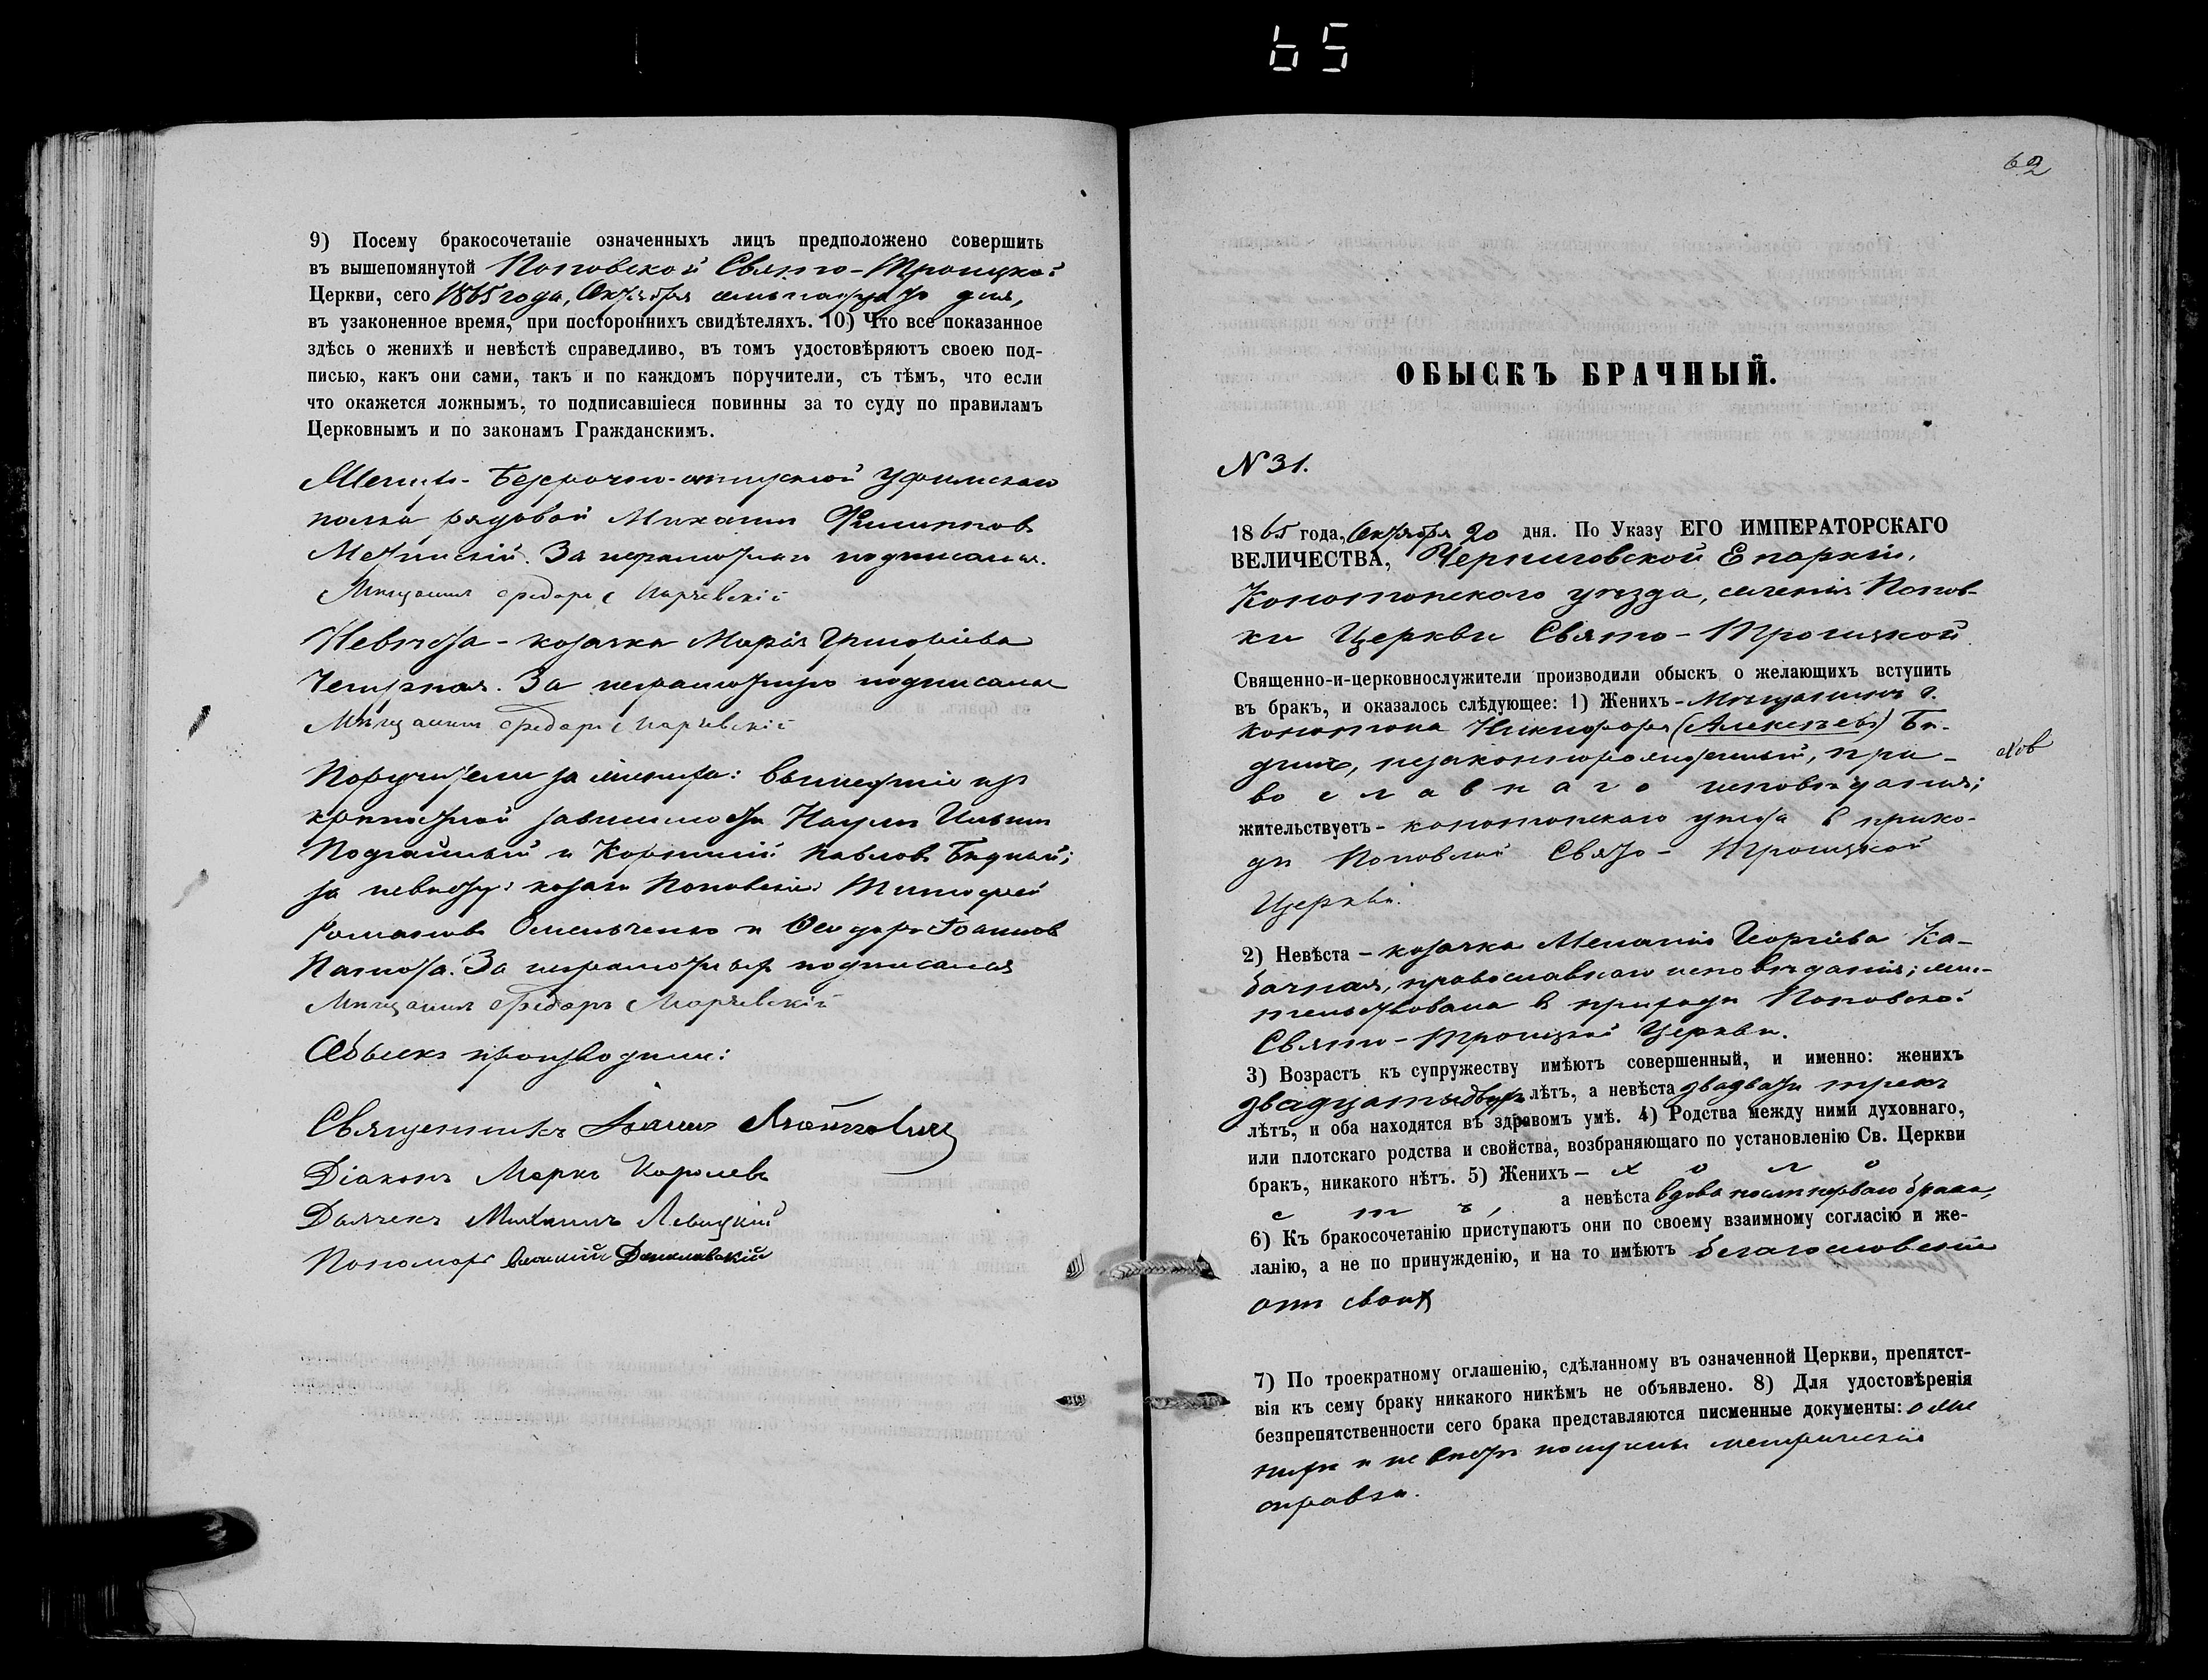 65
9) Посему бракосочетаніе означенныхъ лицъ предположено совершить
въ вышепомянутой Поповской Свято-Троицкой
Церкви, сего 1865 года, Октября дня,
въ узаконенное время, при постороннихъ свидѣтеляхъ. 10) Что все показанное
здѣсь о женихѣ и невѣстѣ справедливо, въ томъ удостовѣряютъ своею под-
писью, какъ они сами, такъ и по каждомъ поручители, съ тѣмъ, что если
что окажется ложнымъ, то подписавшіеся повинны за то суду по правиламъ
Церковнымъ и по законамъ Гражданскимъ.
Женихъ - безсрочно-отпускной Уфимскаго
полка рядовой Михаилъ Филипповъ
За неграмотнаго подписался
Мѣщанинъ Федоръ
Невѣста - козачка Марія
За неграмотную подписался
Мѣщанинъ Федоръ
Поручители за жениха: вышедшіе изъ
крѣпостной зависимости Наумъ Ильинъ
и Корнилій Павловъ Бѣдный;
за невѣсту: козаки Поповскіе Тимофей
Романовъ Омельченко и Ѳеодоръ Іоанновъ
За неграмотныхъ подписался
Мѣщанинъ Федоръ
Обыскъ производили:
Священникъ Іоаннъ
Діаконъ Маркъ Королевъ
Дьячекъ Михаилъ Левицкій
Пономарь
62
ОБЫСКЪ БРАЧНЫЙ.
N 31.
1865 года, Октября 20 дня. По Указу ЕГО ИМПЕРАТОРСКАГО
ВЕЛИЧЕСТВА, Черниговской Епархіи,
Конотопскаго уѣзда, селенія Попов-
ки Церкви Свято-Троицкой
Священно-и-церковнослужители производили обыскъ о желающихъ вступить
въ бракъ, и оказалось слѣдующее: 1) Женихъ - Мѣщанинъ г.
Конотопа Никифоръ (Алексѣевъ) Бѣ-
дный, незаконнорожденный, пра-
вославнаго исповѣданія;
жительствуетъ - конотопскаго уѣзда в прихо-
дѣ Поповской Свято-Троицкой
Церкви.
2) Невѣста - козачка Меланія Георгіева Ка-
бачная, православнаго исповѣданія; жи-
тельствовала в приходѣ Поповской
Свято-Троицкой Церкви.
3) Возрастъ къ супружеству имѣютъ совершенный, и именно: женихъ
двадцати двухъ лѣтъ, а невѣста двадцати трехъ
лѣтъ, и оба находятся въ здравомъ умѣ. 4) Родства между ними духовнаго,
или плотскаго родства и свойства, возбраняющаго по установленію Св. Церкви
бракъ, никакого нѣтъ. 5) Женихъ - холо
стъ, а невѣста вдова послѣ перваго брака,
6) Къ бракосочетанію приступаютъ они по своему взаимному согласію и же-
ланію, а не по принужденію, и на то имѣютъ благословеніе
отъ своихъ
7) По троекратному оглашенію, сдѣланному въ означенной Церкви, препятст-
вія къ сему браку никакого никѣмъ не объявлено. 8) Для удостовѣренія
безпрепятственности сего брака представляются писменные документы: о же
нихѣ и невѣстѣ получены метрическія
справки.